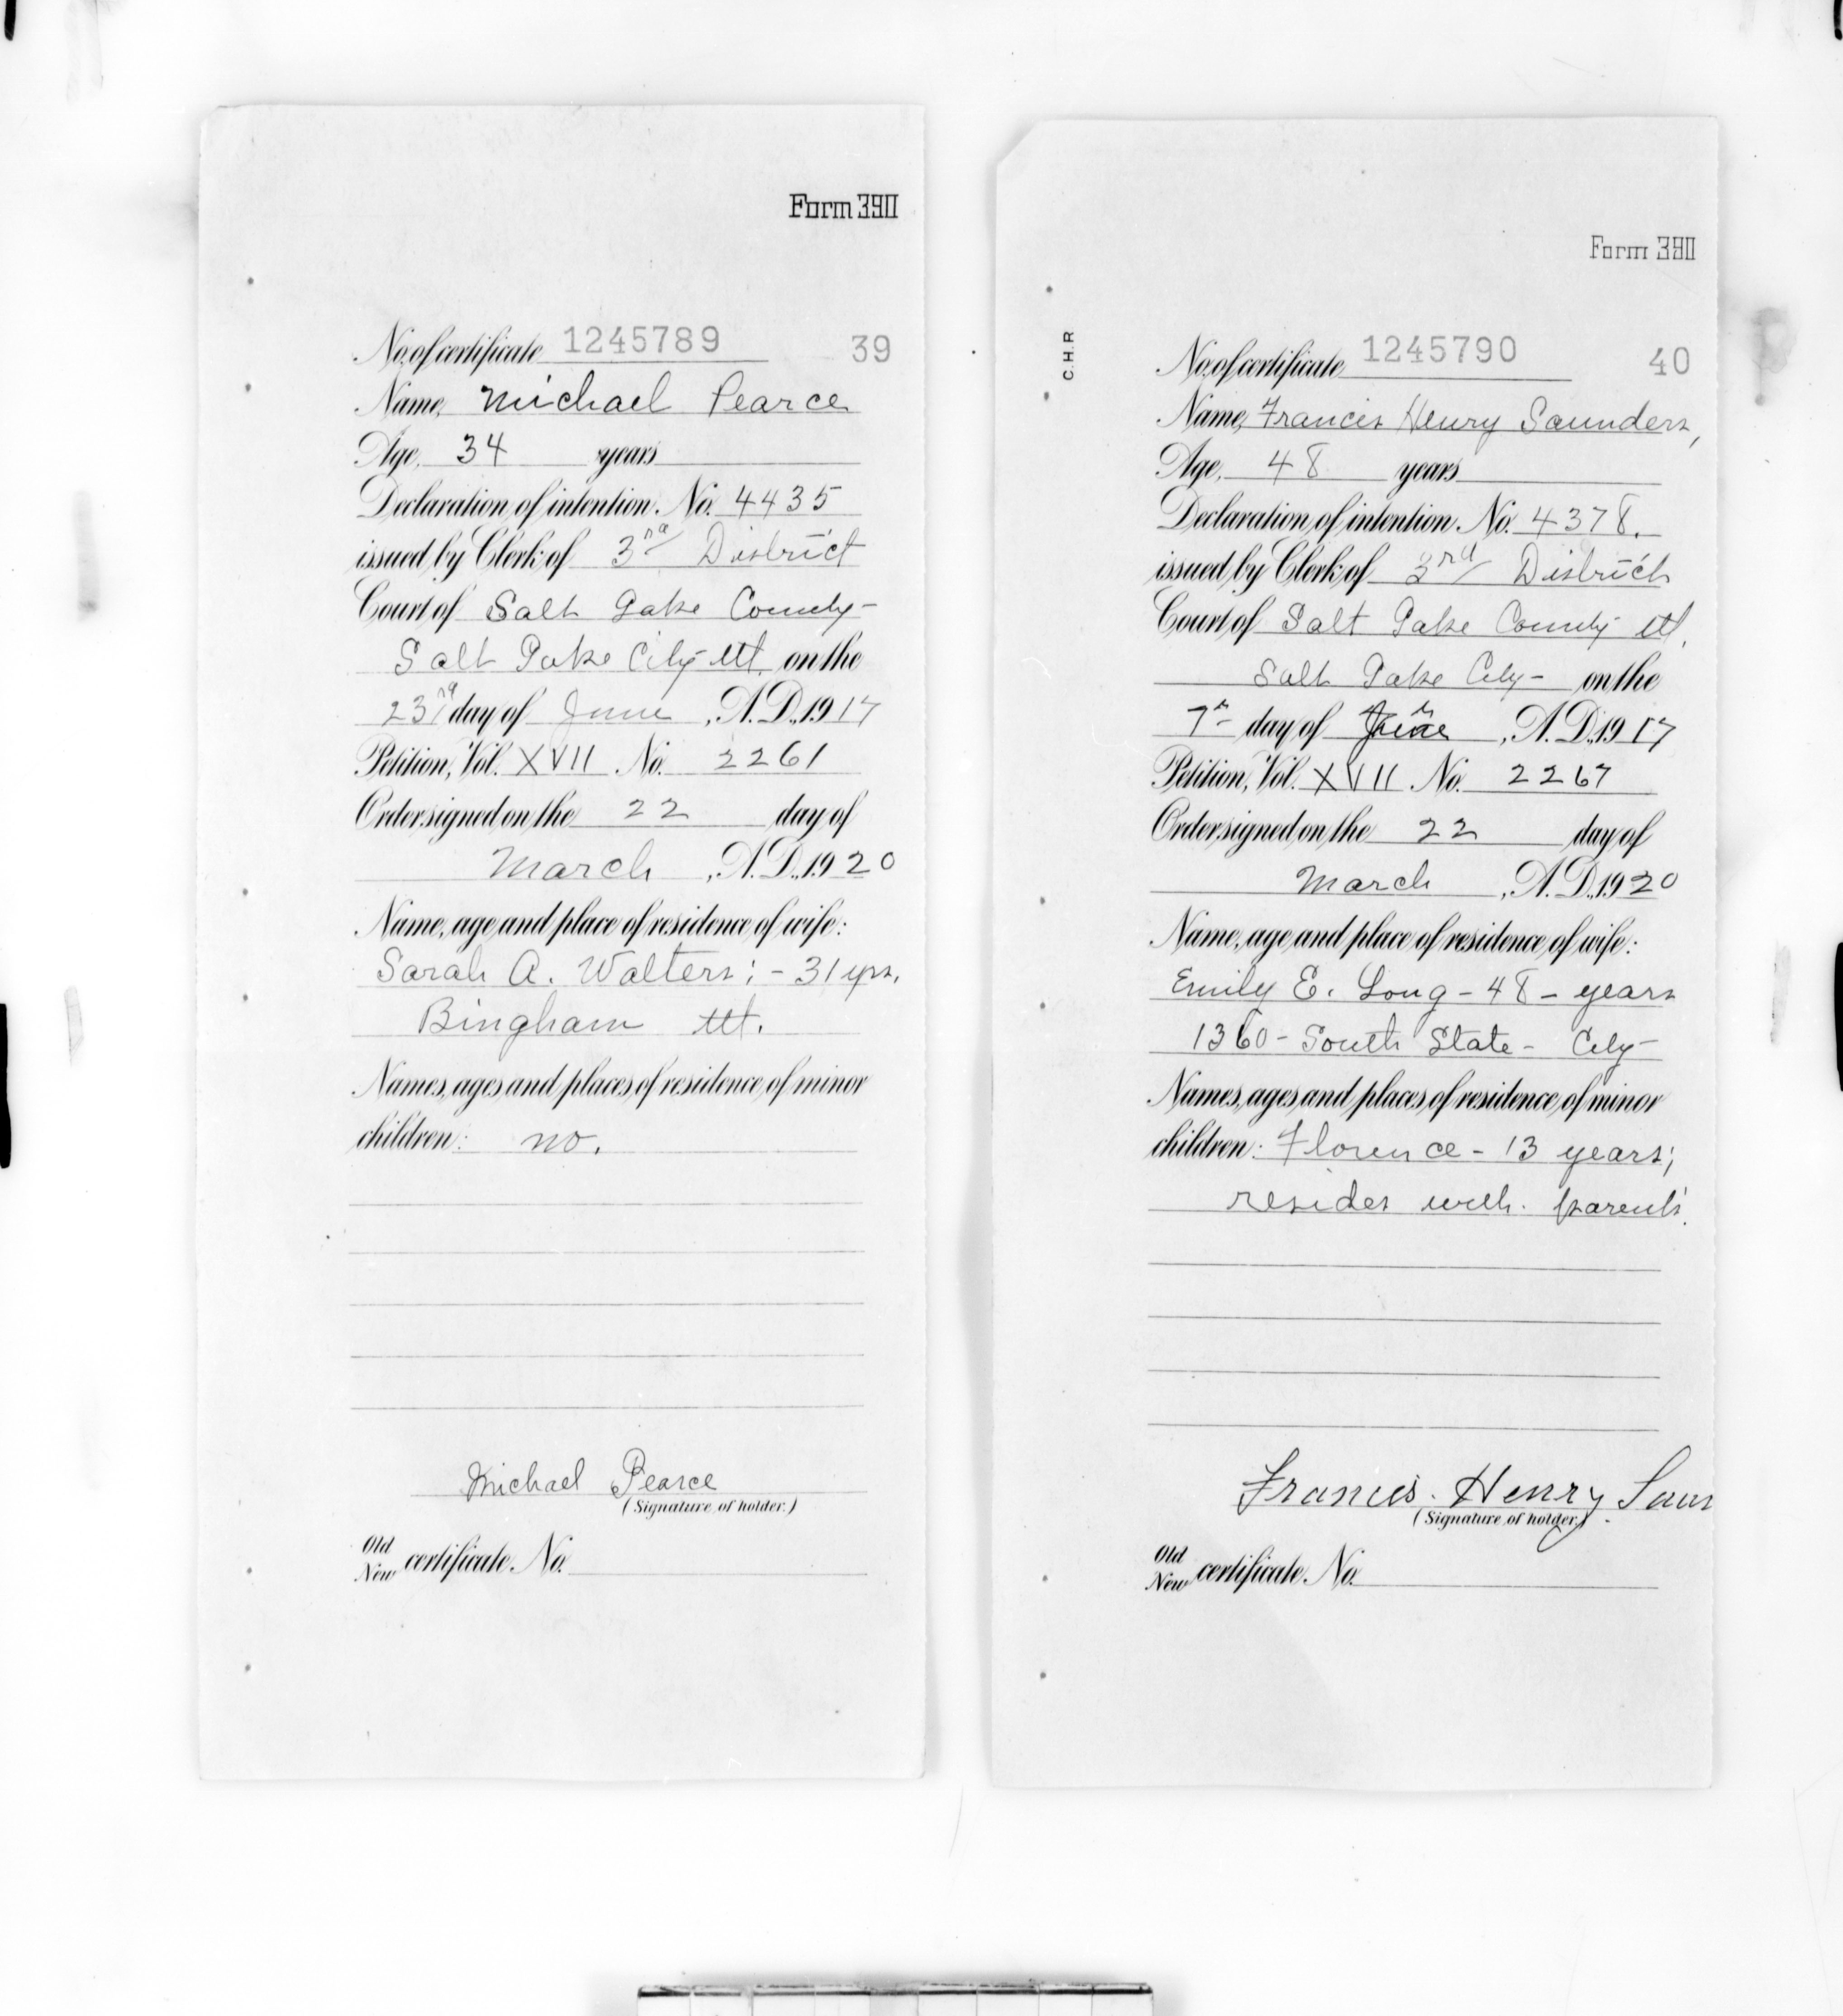 Form 390
No. of certificate 1245789 39
Name, Michael Pearce
Age, 34 years
Declaration of intention. No. 4435
issued by Clerk of 3rd District
Court of Salt Lake County-
Salt Lake City Ut. on the
23rd day of June, A.D., 1917
Petition, Vol. XVII. No. 2261
Order signed on the 22 day of
March, A.D., 1920
Name, age and place of residence of wife:
Sarah A. Walters; - 31 yrs.
Bingham Ut.
Names, ages and places of residence of minor
children: no.
Michael Pearce
(Signature of holder.)
Old
New certificate No.
Form 390
C.H.R
No. of certificate 1245790 40
Name, Francis Henry Saunders,
Age, 48 years
Declaration of intention. No. 4378.
issued by Clerk of 3rd District
Court of Salt Lake County Ut.
Salt Lake City - on the
7th day of June, A.D., 1917
Petition, Vol. XVII. No. 2267
Order signed on the 22 day of
March, A.D., 1920
Name, age and place of residence of wife:
Emily E. Long - 48 - years
1360 - South State - City -
Names, ages and places of residence of minor
children: Florence - 13 years;
resides with parents.
Francis. Henry Saun
(Signature of holder.)
Old
New certificate No.